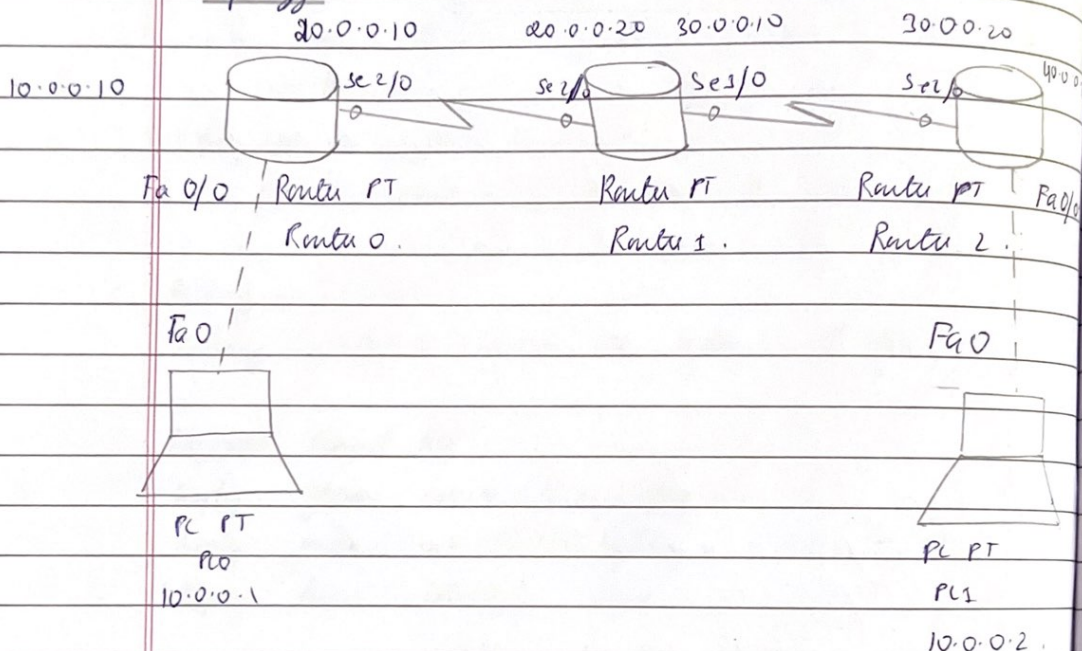 20.0.0.10 20.0.0.20 30.0.0.10 30.0.0.20
10.0.0.10 Se2/0 Se2/0 Se1/0 Se2/0 40.0.0
Fa 0/0 Router PT Router PT Router PT Fa0/0
Router 0. Router 1. Router 2.
Fa0 Fa0
PC PT
PC0
10.0.0.1
PC PT
PC1
10.0.0.2.